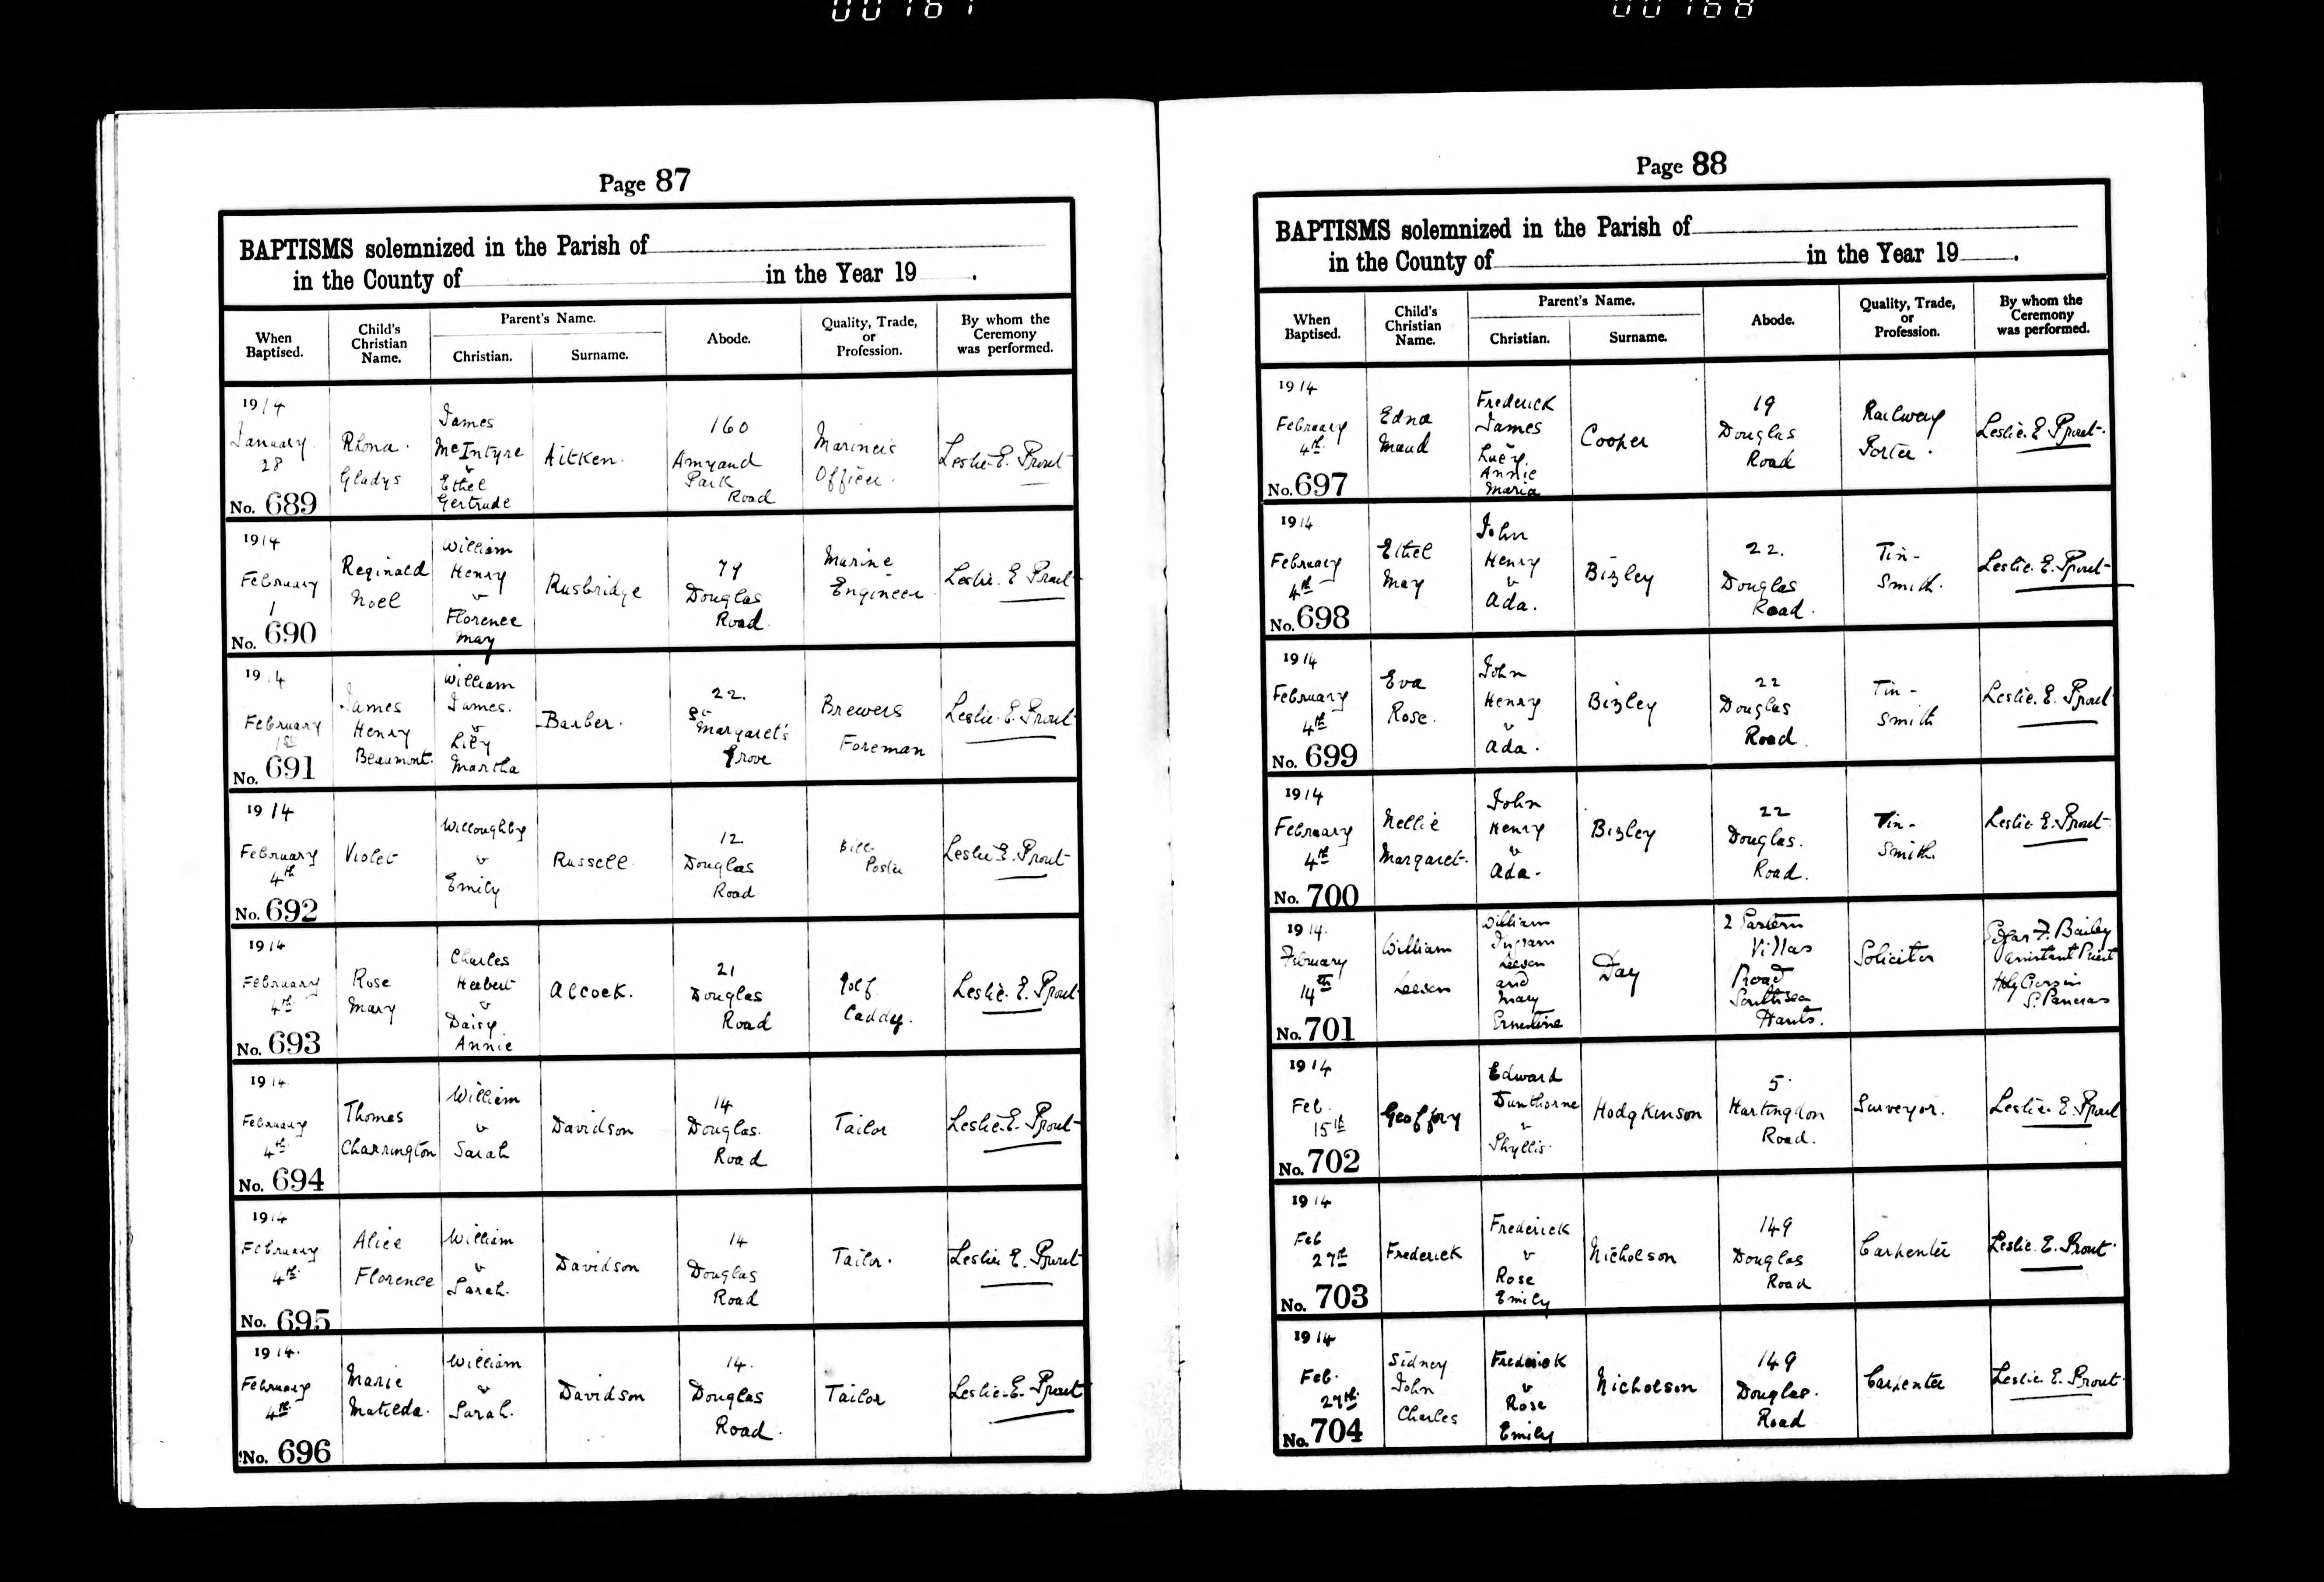 00167
00168
Page 87
BAPTISMS solemnized in the Parish of
in the County of in the Year 19 .
When Baptised. Child's Christian Name. Parent's Name. Christian. Surname. Abode. Quality, Trade, or Profession. By whom the Ceremony was performed.
1914 January 28 No. 689 Rhona Gladys James McIntyre & Ethel Gertrude Aitken. 160 Amyand Park Road Officer. Leslie E. Prout
1914 February 1 No. 690 Reginald Noel William Henry & Florence May Rusbridge 79 Douglas Road Marine Engineer Leslie. E Prout
1914 February 1st No. 691 James Henry Beaumont. William James. & Lily Martha Barber. 22. St Margaret's Grove Brewers Foreman Leslie. E. Prout
1914 February 4th No. 692 Violet Willoughby & Emily Russell 12 Douglas Road Bill Poster Leslie E. Prout
1914 February 4th No. 693 Rose Mary Charles Herbert & Daisy Annie Alcock. 21 Douglas Road Golf Caddy. Leslie. E. Prout
1914 February 4th No. 694 Thomas Charrington William & Sarah Davidson 14 Douglas. Road Tailor Leslie. E. Prout
1914 February 4th No. 695 Alice Florence William & Sarah. Davidson 14 Douglas Road Tailor. Leslie E. Prout
1914. February 4th No. 696 Marie Matilda. William & Sarah. Davidson 14. Douglas Road. Tailor Leslie. E. Prout
Page 88
BAPTISMS solemnized in the Parish of
in the County of in the Year 19 .
When Baptised. Child's Christian Name. Parent's Name. Christian. Surname. Abode. Quality, Trade, or Profession. By whom the Ceremony was performed.
1914 February 4th No. 697 Edna Maud Frederick James & Lucy Annie Maria Cooper 19 Douglas Road Railway Porter. Leslie. E Prout.
1914 February 4th No. 698 Ethel May John Henry & Ada. Bizley 22. Douglas Road. Tin-Smith. Leslie. E. Prout
1914 February 4th No. 699 Eva Rose. John Henry & Ada. Bizley 22 Douglas Road. Tin-Smith Leslie. E. Prout
1914 February 4th No. 700 Nellie Margaret. John Henry & Ada. Bizley 22 Douglas. Road. Tin-Smith. Leslie E. Prout
1914. February 14th No. 701 William Leeson William Ingram Leeson and Mary Ernestine Day 2 Villas Road Southsea Hants. Solicitor Edgar F. Bailey Assistant Priest Holy Cross in St. Pancras
1914 Feb. 15th No. 702 Geoffory Edward Dunthorne & Phyllis Hodgkinson 5 Hartington Road. Surveyor. Leslie E. Prout
1914 Feb 27th No. 703 Frederick Frederick & Rose Emily Nicholson 149 Douglas Road Carpenter Leslie. E. Prout.
1914 Feb. 27th No. 704 Sidney John Charles Frederick & Rose Emily Nicholson 149 Douglas. Road Carpenter Leslie E. Prout